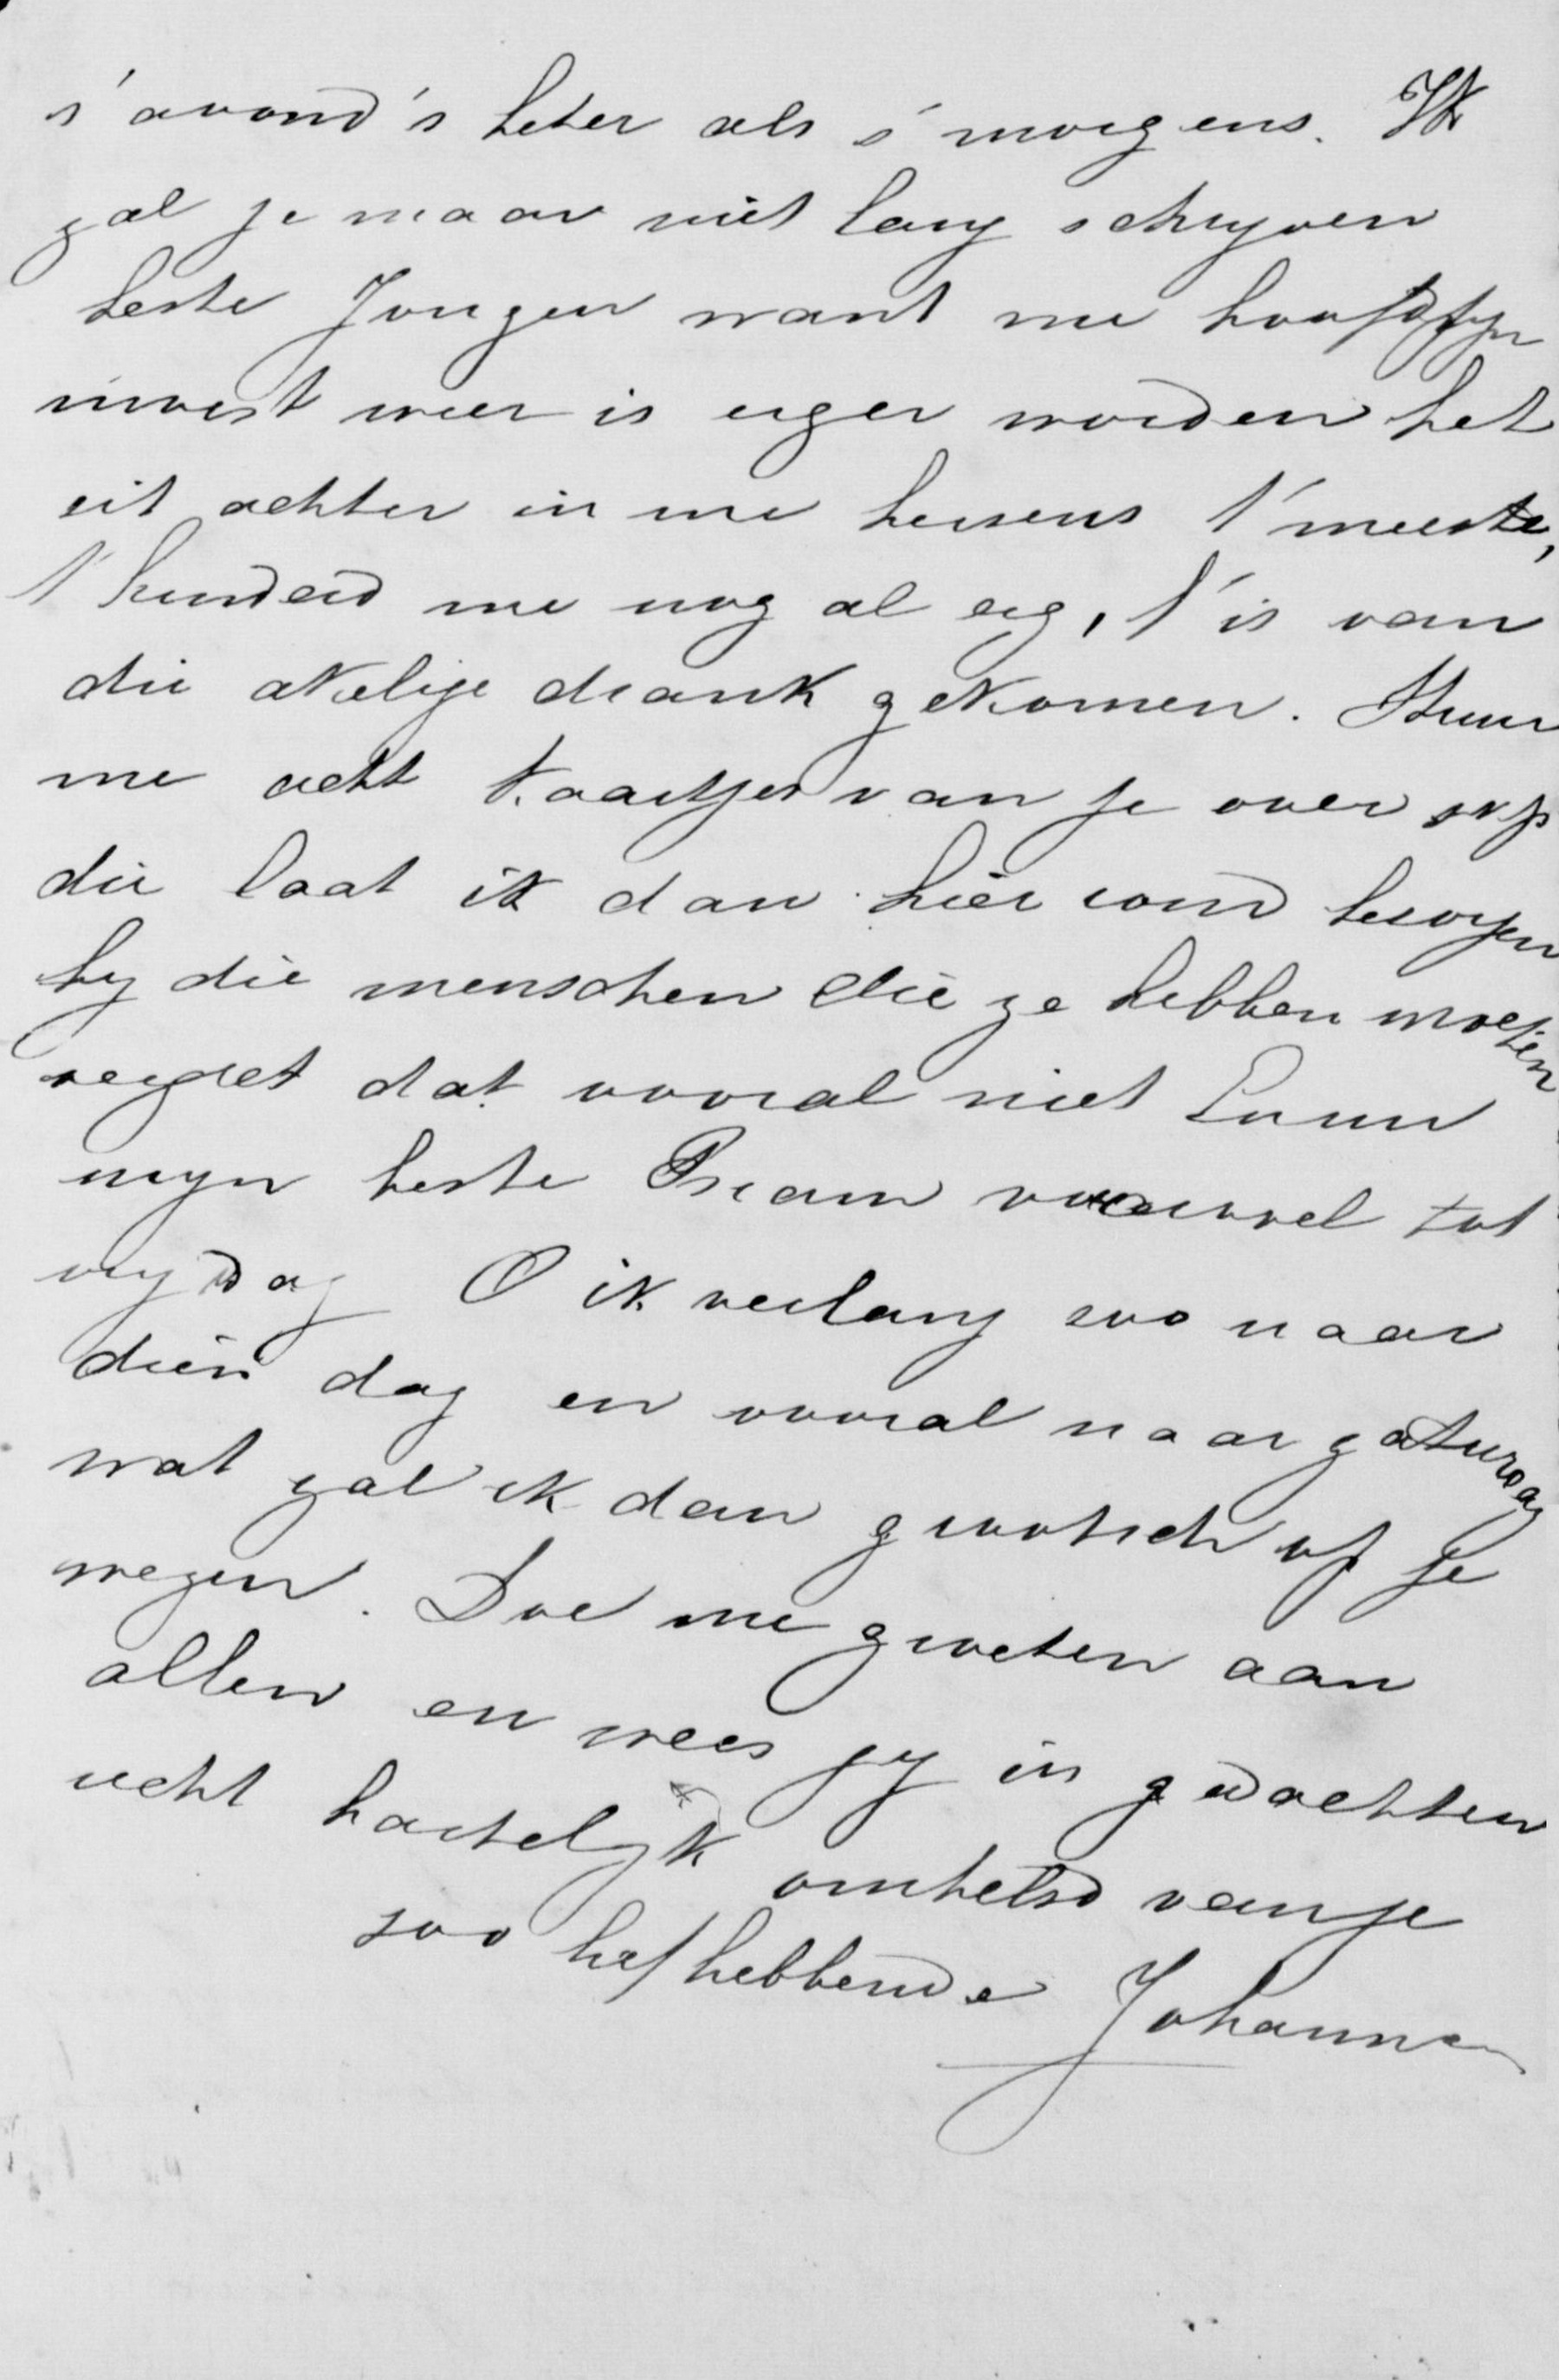 s'avond's beter als s'morgens. Ik
zal je maar niet lang schryven
beste Jongen want me hoofdpyn
moest weer is erger worden het
zit achter in me hersens t'meeste,
t'hinderd me nog al erg, t'is van
die akelige drank gekomen. Stuur
me acht kaartjes van je over
die laat ik dan hier rond bezorgen
by die menschen die ze hebben moeten
vergeet dat vooral niet
myn beste Bram vaarwel tot
vrydag O ik verlang zoo naar
dien dag en vooral naar zaturdag
wat zal ik dan grootsch op je
wezen. Doe me groeten aan
allen en wees jy in gedachten
recht hartelyk omhelsd van je
zoo liefhebbende Johanna